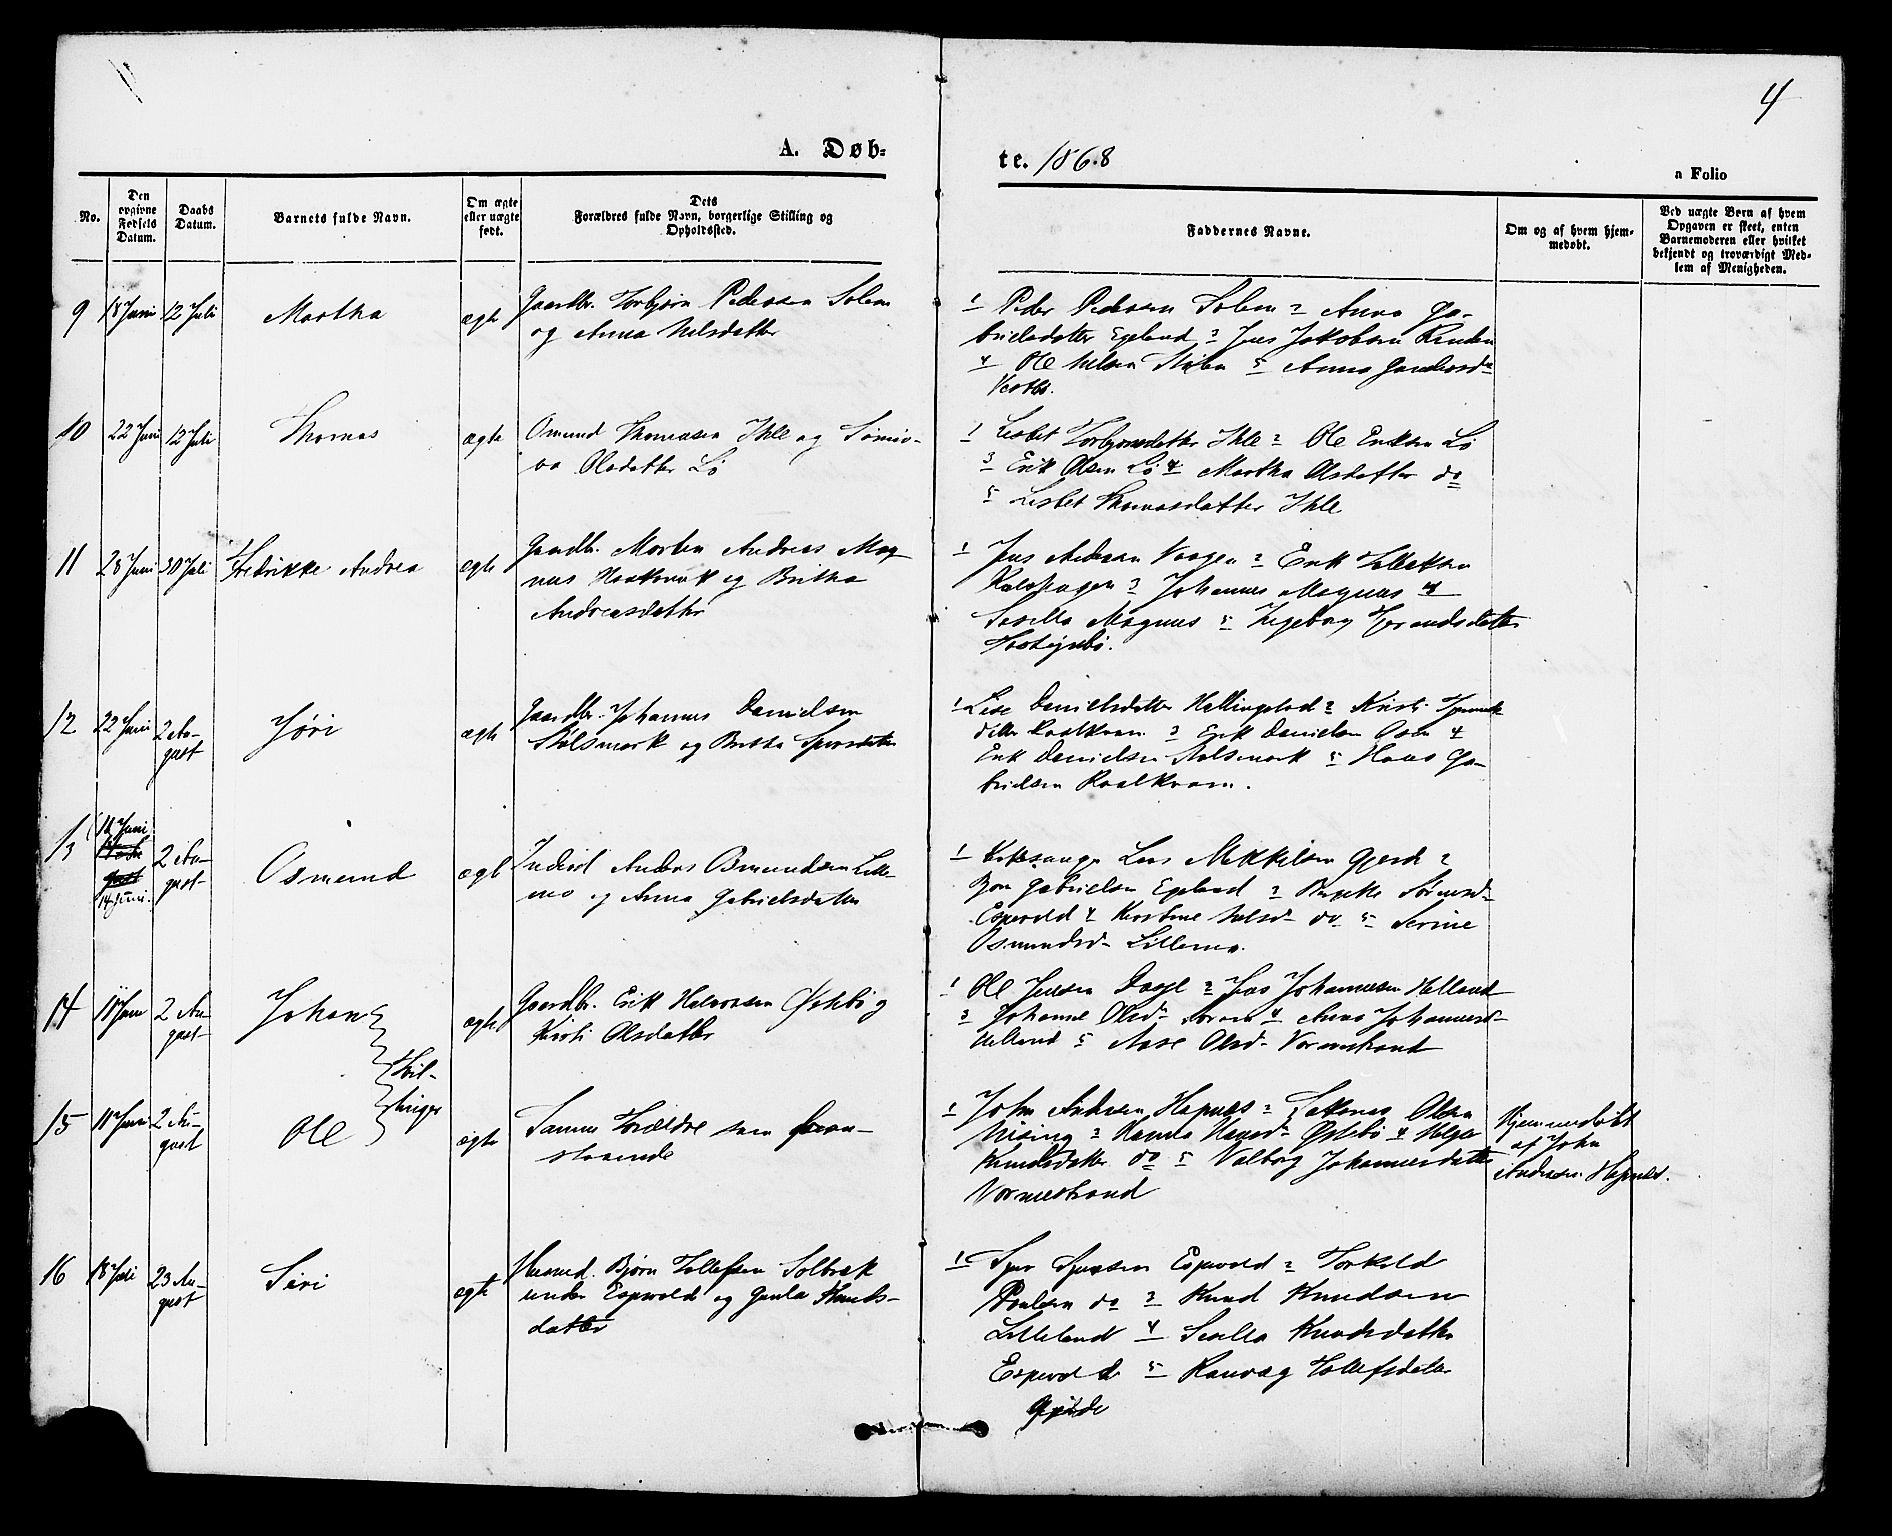 4
A. Døb-
te. 1868
a Folio
No.
Den
opgivne
Fødsels
Datum.
Daabs
Datum.
Barnets fulde Navn.
Om ægte
eller uægte
født.
Dets
Forældres fulde Navn, borgerlige Stilling og
Opholdssted.
Faddernes Navne.
Om og af hvem hjem-
medøbt.
Ved uægte Børn af hvem
Opgaven er skeet, enten
Barnemoderen eller hvilket
bekjendt og troværdigt Med-
lem af Menigheden.
9 18 Juni 12 Juli Martha ægte
Gaardbr. Torbjørn Pedersen Solem
og Anna Nilsdatter
1 Peder Pedersen Solem 2 Anna Ga-
brielsdatter Egeland 3 Jens Jakobsen
4 Ole Nilsen 5 Anna
10 22 Juni 12 Juli Thomas ægte
Osmund Thomasen Ihle og Sønnø-
va Olsdatter Lø
1 Lisbet Torbjørnsdatter Ihle 2 Ole Eriksen Lø
3 Erik Olsen Lø 4 Martha Olsdatter do
5 Lisbet Thomasdatter Ihle
11 28 Juni 30 Juli Fredrikke Andrea ægte
Gaardbr. Morten Andreas Mag-
nus og Britha
Andreasdatter
1 Jens Andersen Vaagen 2 Erik Tollefsen
3 Johannes Magnus 4
Sisella Magnus 5 Ingeborg
12 22 Juni 2 Au-
gust Jøri ægte
Gaardbr. Johannes Danielsen
Stølsmark og Britha Sjursdatter
1 Lise Danielsdatter 2 Kristi
datter Raalkvam 3 Erik Danielsen 4
Erik Danielsen Stølsmark 5 Hans Ga-
brielsen Raalkvam.
13 14 Juni.
2 Au-
gust Osmund ægte
Inderst Anders Osmundsen Lille-
mo og Anna Gabrielsdatter
1 Kirkesanger Lars Mikkelsen Gjerde 2
Bjørn Gabrielsen Egeland 3
Espevold 4 Kirstine Nilsd- do 5 Serine
Osmundsd- Lillemo.
14 11 Juni 2 Au-
gust Johan ægte
Gaardbr. Erik Halvorsen Østebø og
Kirsti Olsdatter
1 Ole Jensen 2 Johannesen Helland
3 Johanne Olsd- 4 Anna Johannesd-
Helland 5 Aase Olsd- Vormestrand
Tvil-
linger
15 11 Juni 2 Au-
gust Ole ægte
Samme Forældre som foran-
staaende
1 John Andersen Hapnes 2 Olsen
3 Hansd- Østebø 4 Helga
Knudsdatter do 5 Valborg Johannesdatter
Vormestrand
Hjemmedøbt
af John
Andersen Hapnes.
16 18 Juli 23 Au-
gust Siri ægte
Huusmd. Bjørn Tollefsen Solbræk
under Espevold og Gunla Knuds-
datter
1 Sjur Sjursen Espevold 2 Torkild
Poulsen do 3 Knud Knudsen
Lilleland 4 Sisilla Knudsdatter
Espevold 5 Ranveg Tollefsdatter